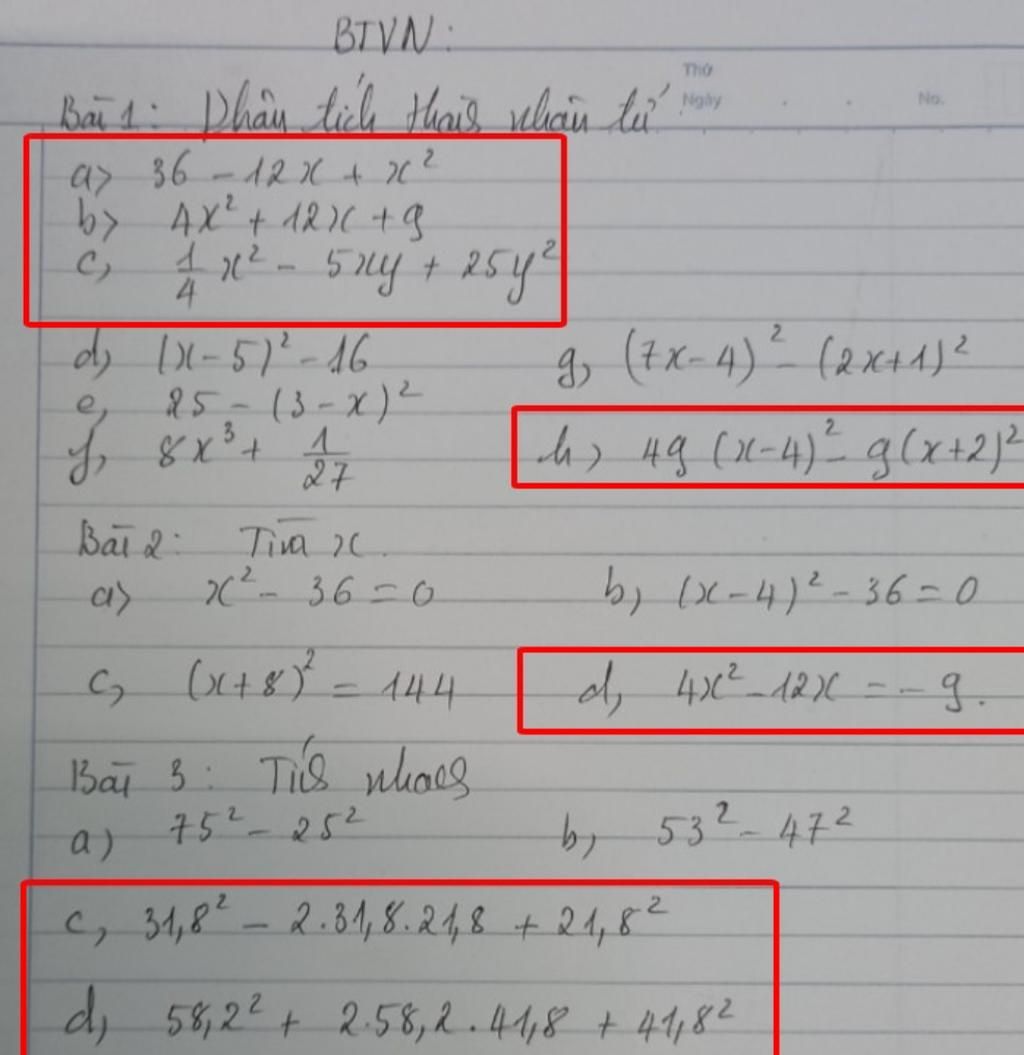 BTVN:
Thứ
Ngày . . No.
Bài 1: Phân tích thành nhân tử
a> 36 - 12x + x²
b> 4x² + 12x + 9
c, 1/4 x² - 5xy + 25y²
d, (x-5)² - 16
g, (7x-4)² - (2x+1)²
e, 25 - (3-x)²
f, 8x³ + 1/27
h, 49 (x-4)² - 9(x+2)²
Bài 2: Tìm x.
a> x² - 36 = 0
b, (x-4)² - 36 = 0
c, (x+8)² = 144
d, 4x² - 12x = -9.
Bài 3: Tính nhanh
a) 75² - 25²
b, 53² - 47²
c, 31,8² - 2.31,8.21,8 + 21,8²
d, 58,2² + 2.58,2.41,8 + 41,8²